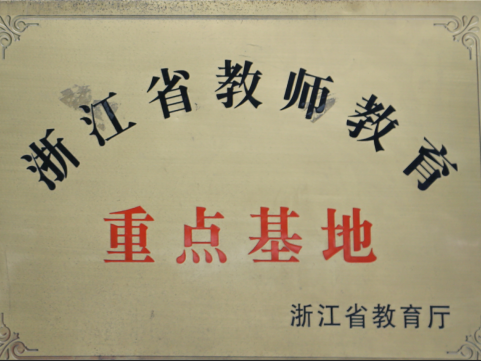 浙江省教师教育
重点基地
浙江省教育厅